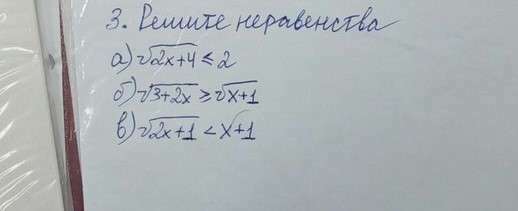 3. Решите неравенства
а) √2x+4 ≤ 2
б) √3+2x ≥ √x+1
в) √2x+1 < x+1